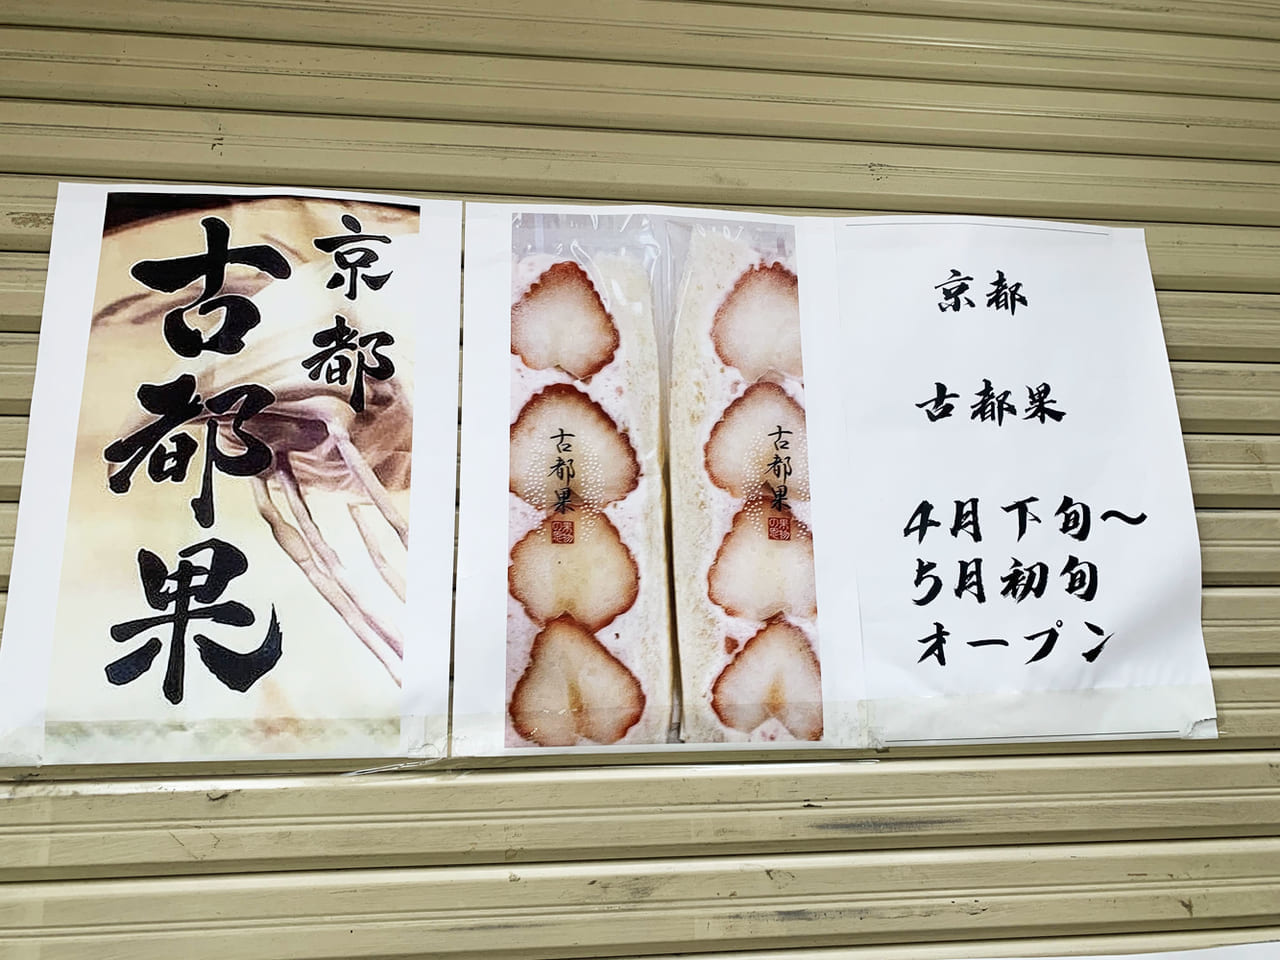 京都
古都果
古都果
古都果
京都
古都果
4月下旬～
5月初旬
オープン